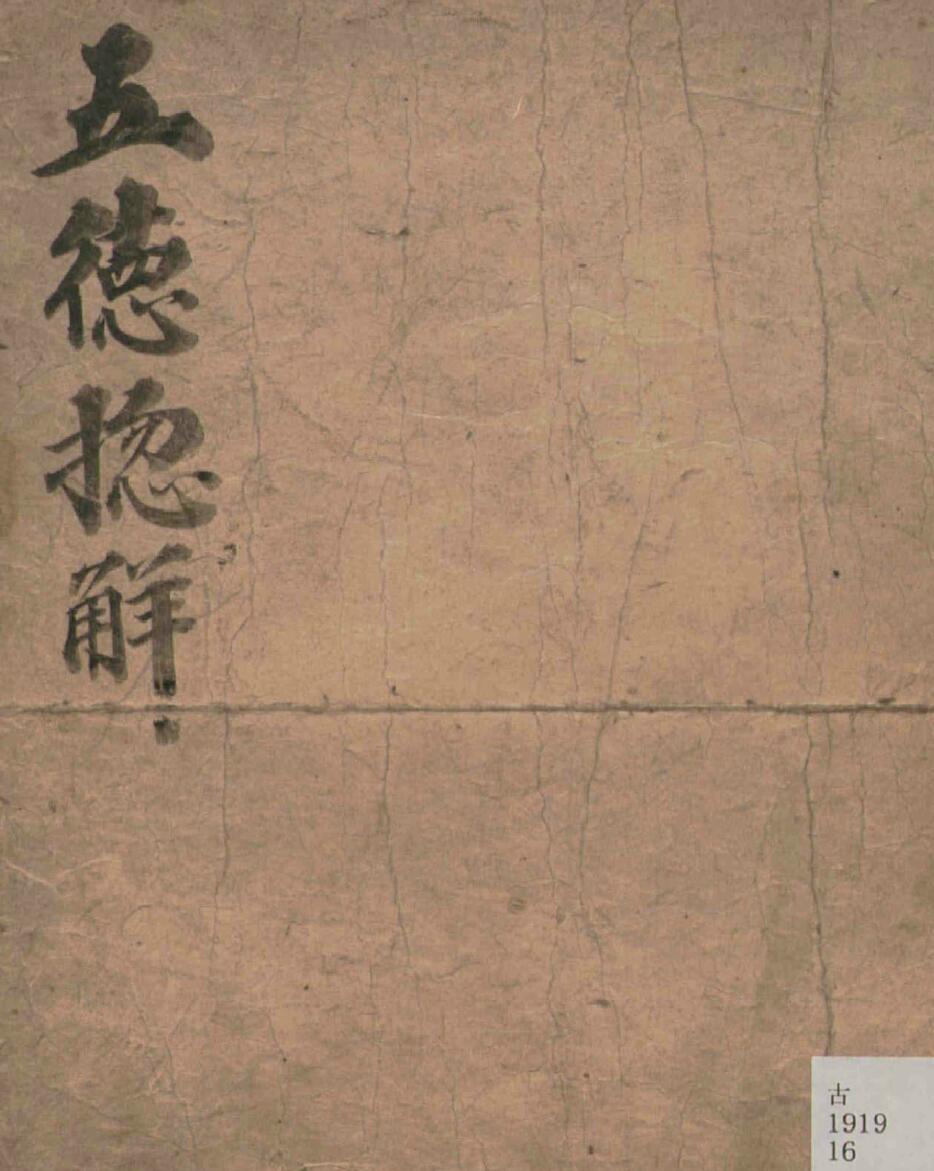 五徳揔觧
古
1919
16